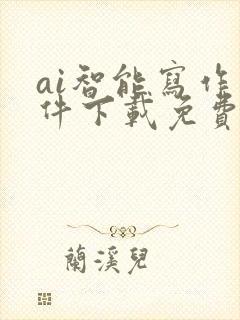 ai智能寫作
件下載免費
蘭溪兒